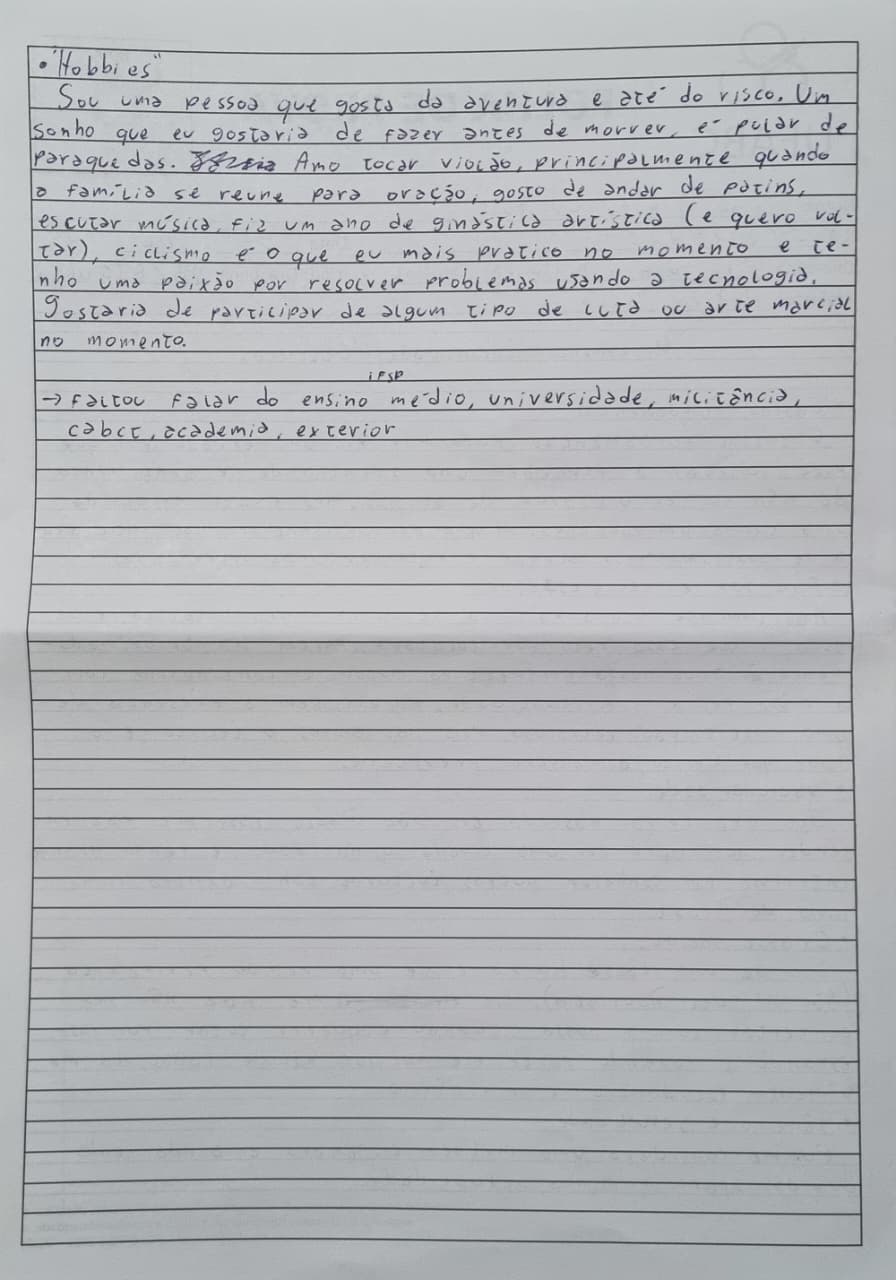 • "Hobbies"
Sou uma pessoa que gosta da aventura e até do risco. Um
sonho que eu gostaria de fazer antes de morrer, é pular de
paraquedas. Amo tocar violão, principalmente quando
a família se reune para oração, gosto de andar de patins,
escutar música, fiz um ano de ginástica artística (e quero vol-
tar), ciclismo é o que eu mais pratico no momento e te-
nho uma paixão por resolver problemas usando a tecnologia.
Gostaria de participar de algum tipo de luta ou arte marcial
no momento.
ifsp
→ Faltou falar do ensino médio, universidade, militância,
cabct, academia, exterior